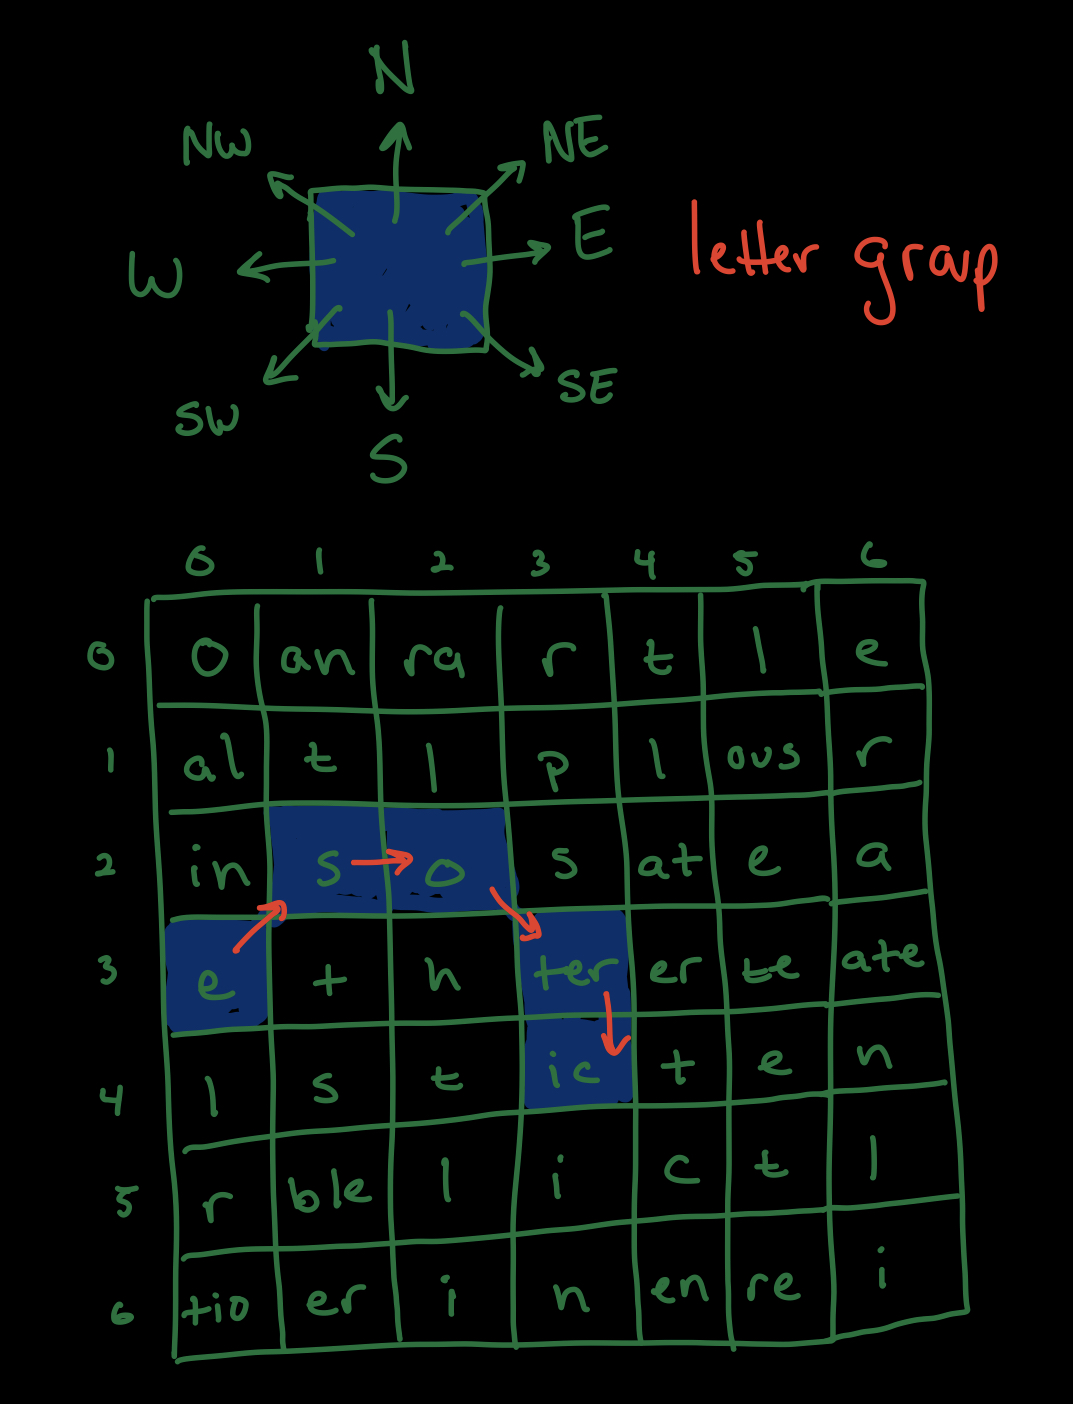 N
NW NE
W E
letter group
SW SE
S
0 1 2 3 4 5 6
0 O an ra r t l e
1 al t l p l ous r
2 in s o s at e a
3 e t h ter er te ate
4 l s t ic t e n
5 r ble l i c t l
6 tio er i n en re i